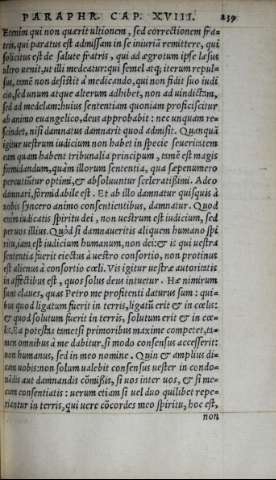 PARAPHR. CAP. XVIII. 239
Etenim qui non quærit ultionem, sed correctionem fra-
tris, qui paratus est admissam in se iniuriã remittere, qui
solicitus est de salute fratris, qui ad ægrotum ipse læsus
ultro uenit, ut illi medeatur: qui semel atq; iterum repul-
sus, tamẽ non desistit à medicando, qui non fidit suo iudi
cio, sed unum atque alterum adhibet, non ad uindictam,
sed ad medelam: huius sententiam quoniam proficiscitur
ab animo euangelico, deus approbabit: nec unquam re-
scindet, nisi damnatus damnarit quod admisit. Quanquã
igitur uestrum iudicium non habet in specie seuerintem
eam quam habent tribunalia principum, tamẽ est magis
formidandum, quàm illorum sententia, qua sæpenumero
percutiũtur optimi, & absoluuntur sceleratissimi. Ad deo
damnari, formidabile est. Et ab illo damnatur quisquis à
uobis syncero animo consentientibus, damnatur. Quod
enim iudicatis spiritu dei, non uestrum est iudicium, sed
per uos illius. Quòd si damnaueritis aliquem humano spi
ritu, iam est iudicium humanum, non dei: & is qui uestra
sententia fuerit eiectus à uestro consortio, non protinus
est alienus à consortio cœli. Vis igitur uestræ autoritatis
in affectibus est, quos solus deus intuetur. Hæ nimirum
sunt claues, quas Petro me profitenti daturus sum: qui-
bus quod ligatum fuerit in terris, ligatũ erit & in cœlis:
& quod solutum fuerit in terris, solutum erit & in cœ-
lis. Ea potestas tametsi primoribus maxime competet, ta-
men omnibus à me dabitur, si modo consensus accesserit:
non humanus, sed in meo nomine. Quin & amplius di-
cam uobis: non solum ualebit consensus uester in condo-
nãdis aut damnandis cõmißis, si uos inter uos, & si me-
cum consentiatis: uerum etiam si uel duo quilibet repe-
riantur in terris, qui uere cõcordes meo spiritu, hoc est,
non